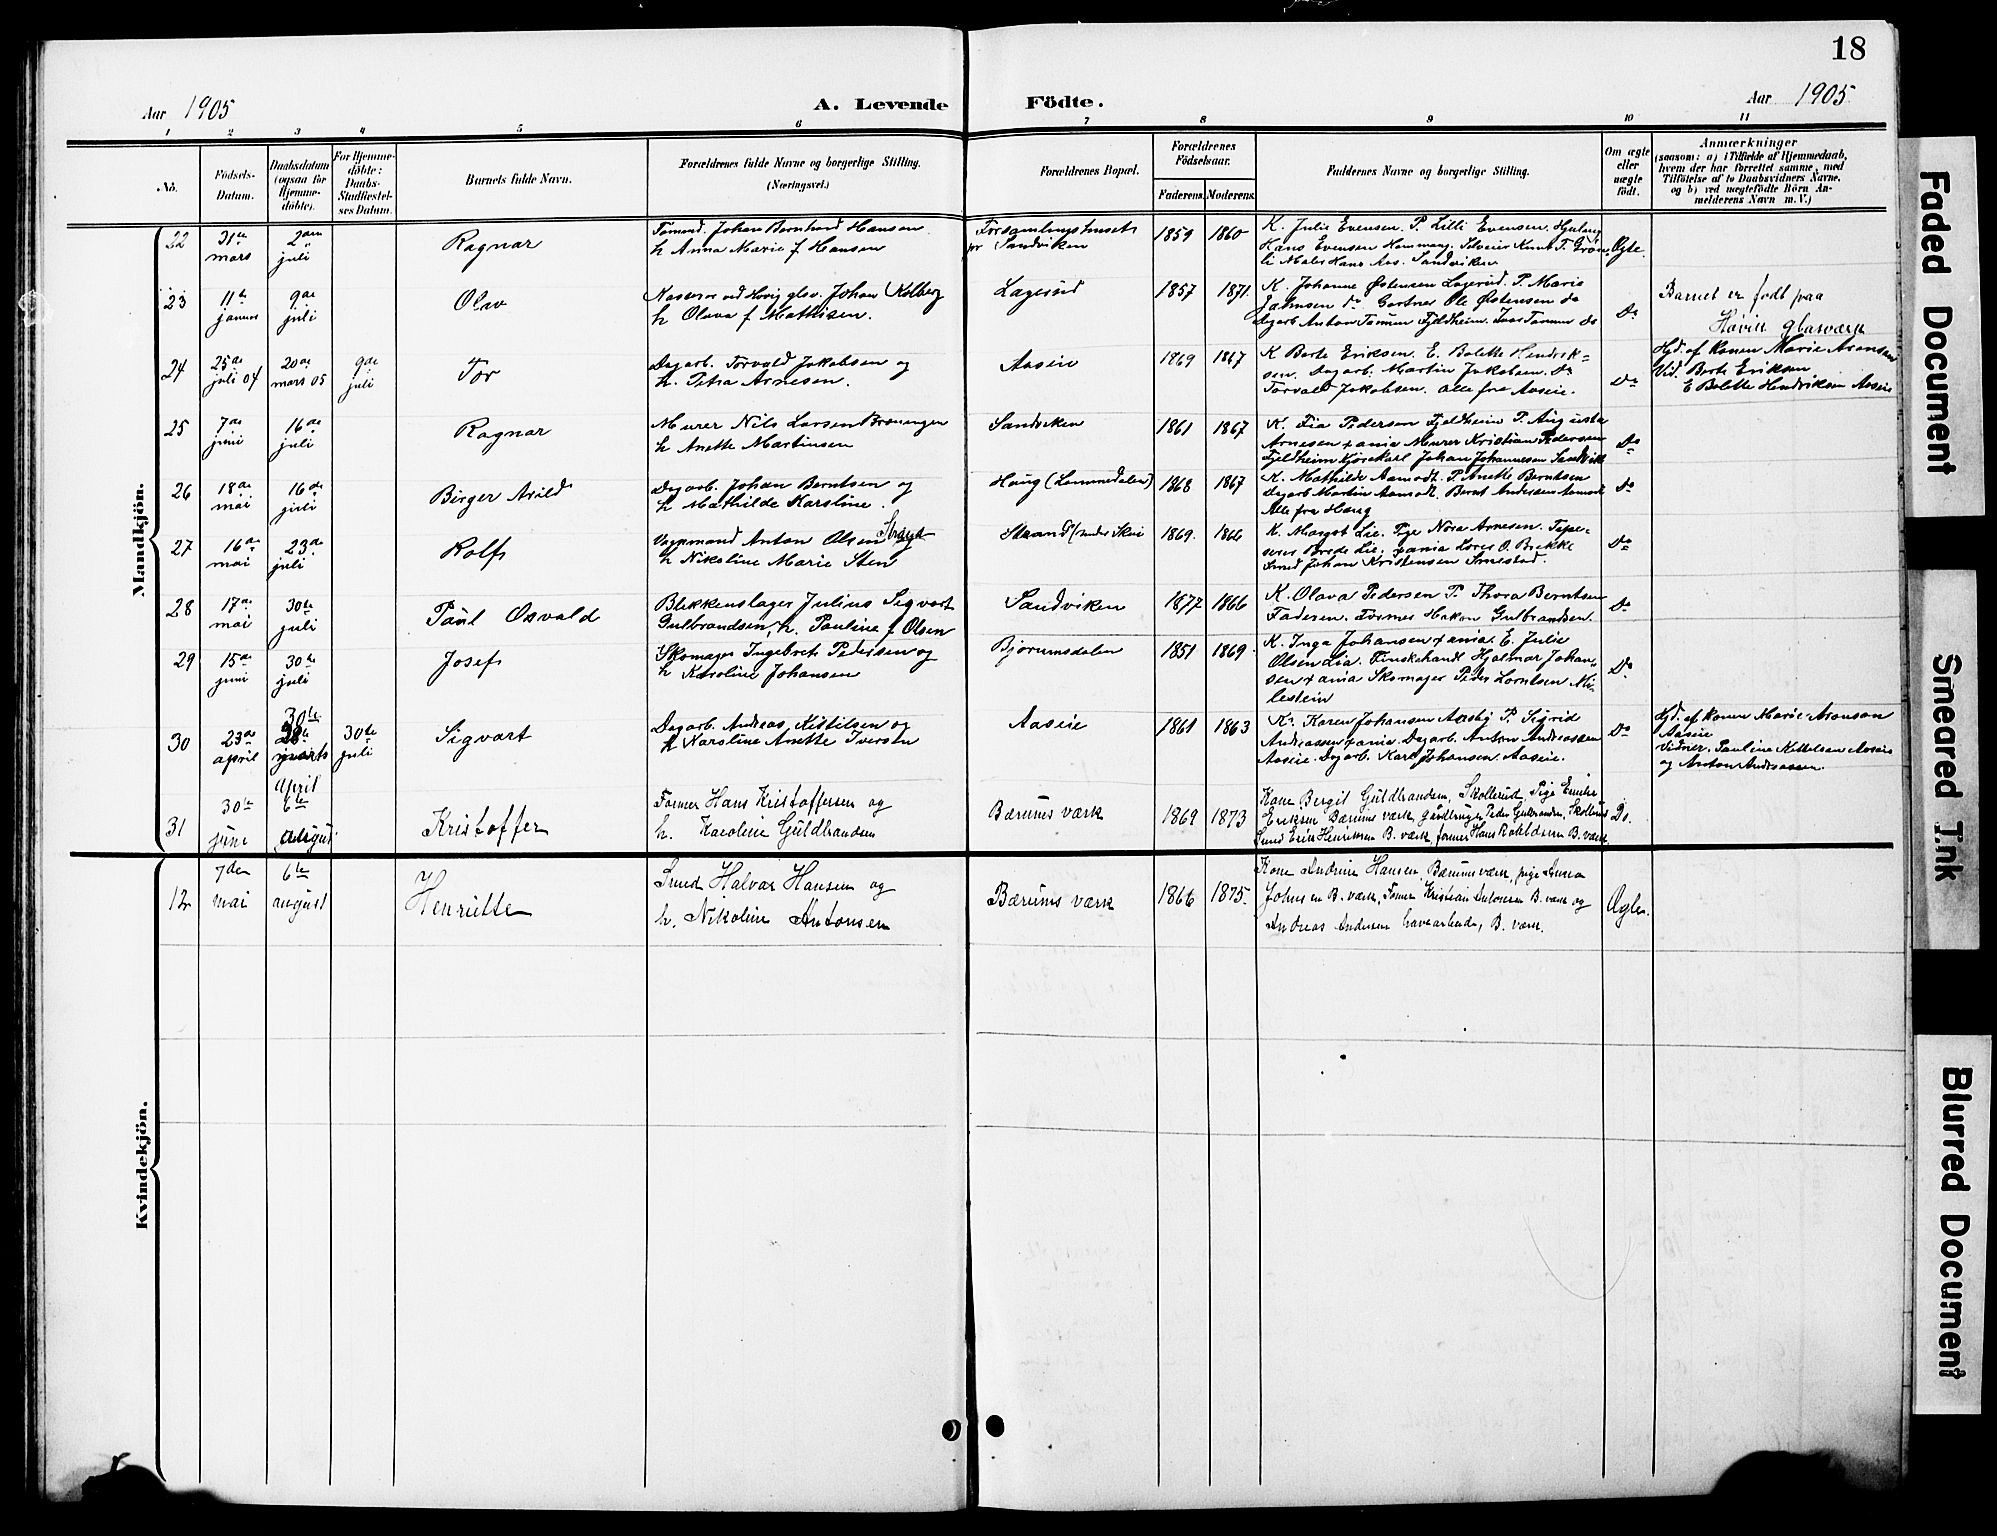 18
Aar 1905
A. Levende Födte.
Aar 1905.
1 2 3 4 5 6 7 8 9 10 11
No.
Födsels-
Datum.
Daabsdatum
(ogsaa for
Hjemme-
döbte).
For Hjemme-
döbte:
Daabs-
Stadfæstel-
ses Datum.
Barnets fulde Navn.
Forældrenes fulde Navne og borgerlige Stilling.
(Næringsvei.)
Forældrenes Bopæl.
Forældrenes
Födselsaar.
Faderens. Moderens.
Faddernes Navne og borgerlige Stilling.
Om ægte
eller
uægte
födt.
Anmærkninger
(saasom: a) i Tilfælde af Hjemmedaab,
hvem der har forrettet samme, med
Tilföielse af to Daabsvidners Navne,
og b) ved uægtefödte Börn An-
melderens Navn m. V.)
Mandkjön.
22
31te
mars
2den
juli
Ragnar
Tömmd. Johan Bernhard Hansen
h Anna Marie f Hansen
Forsamlingshuset
pr Sandviken
1859 1860
K. Julie Evensen. P. Lilli Evensen.
Hans Evensen
li Maler Hans Aas. Sandviken
Ægte.
23
11te
januar
9de
juli
Olav
Johan Kolberg
h Olava f Mathisen.
Lagerud
1857 1871.
K. Johanne Østensen Lagerud. P. Marie
do Gartner Ole Østensen do
Dagarb Anton Fjeldheim. do
Do
Barnet er født paa
Høvik glasværk
24
25de
juli 04
20de
mars 05
9de
juli
Tor
Dagarb. Torvald Jakobsen og
h. Petra Arnesen.
Aaseie
1869 1867
K Berte Eriksen. E. Bolette Hendrik-
sen. Dagarb. Martin Jakobsen. Do
Torvald Jakobsen. Alle fra Aaseie.
Do
Hjd. af konen Marie Aronsen
Vid. Berte Eriksen
E Bolette Hendriksen Aaseie
25
7de
juni
16de
juli
Ragnar
Murer Nils Larsen
h Anette Martinsen
Sandviken
1861 1867
K. Fia Pedersen Fjeldheim P. Augusta
Arnesen xania Murer Kristian Pedersen
Fjeldheim Kjørekarl Johan Johannesen Sandvik
Do
26
18de
mai
16de
juli
Birger Arild
Dagarb. Johan Berntsen og
h Mathilde Karoline.
Haug (Lommedalen)
1868 1867
K. Mathilde Aamodt. P. Anette Berntsen
Dagarb Martin Aamodt. Bernt Andersen Aamodt
Alle fra Haug
Do
27
16de
mai
23de
juli
Rolf
Vognmand Anton Olsen
h Nikoline Marie Sten
1869. 1866
K. Margit Lie. Pige Nora Arnesen. Tape-
serer Brede Lie. xania Lars O. Brekke
Smed Johan Kristensen Smestad.
Do
28
17de
mai
30te
juli
Paul Osvald
Blikkenslager Julius Sigvart
Gulbrandsen, h. Pauline f Olsen
Sandviken
1877 1866
K. Olava Pedersen P. Thora Berntsen
Faderen. Hakon Gulbrandsen.
Do
29
15de
juni
30te
juli
Josef
Skomager Ingebret Pedersen og
h Karoline Johansen
Bjørumsdalen
1851 1869
K. Inga Johansen xania. E. Julie
Olsen Lia. Hjalmar Johan-
sen xania Skomager Peder Lorntsen Mi-
lestein
Do.
30
23de
april
30te
April
30te
juli
Sigvart
Dagarb. Andreas Kittilsen og
h Karoline Anette Iversen
Aaseie
1861 1863
K. Karen Johansen Aasby P. Sigrid
Andreassen xania. Dagarb. Anton Andreassen
Aaseie. Dagarb. Karl Johansen. Aaseie.
Do
Hjd. af konen Marie Aronsen
Aaseie
Vidner. Pauline Kittelsen Aaseie
og Anton Andreassen
31
30te
juni
6te
august
Kristoffer
Former Hans Kristoffersen og
h. Karoline Guldbrandsen
Bærums værk
1869 1873
Kone Bergit Guldbrandsen, Skollerud, Pige Emilie
Eriksen Bærums værk, Peder Gulbrandsen, Skollerud
Smed Erik Henriksen B. værk, former Hans B. værk
Do.
Kvindekjön.
12
7den
mai
6te
august
Henriette
Smed Halvar Hansen og
h. Nikoline Antonsen
Bærums værk
1866 1875.
Kone Andrine Hansen, Bærums værk, pige Anna
Johnsen B. værk, Former Kristian Antonsen B. værk og
Andreas Andersen havearbeider, B. værk.
Ægte.
Faded Document
Smeared Ink
Blurred Document